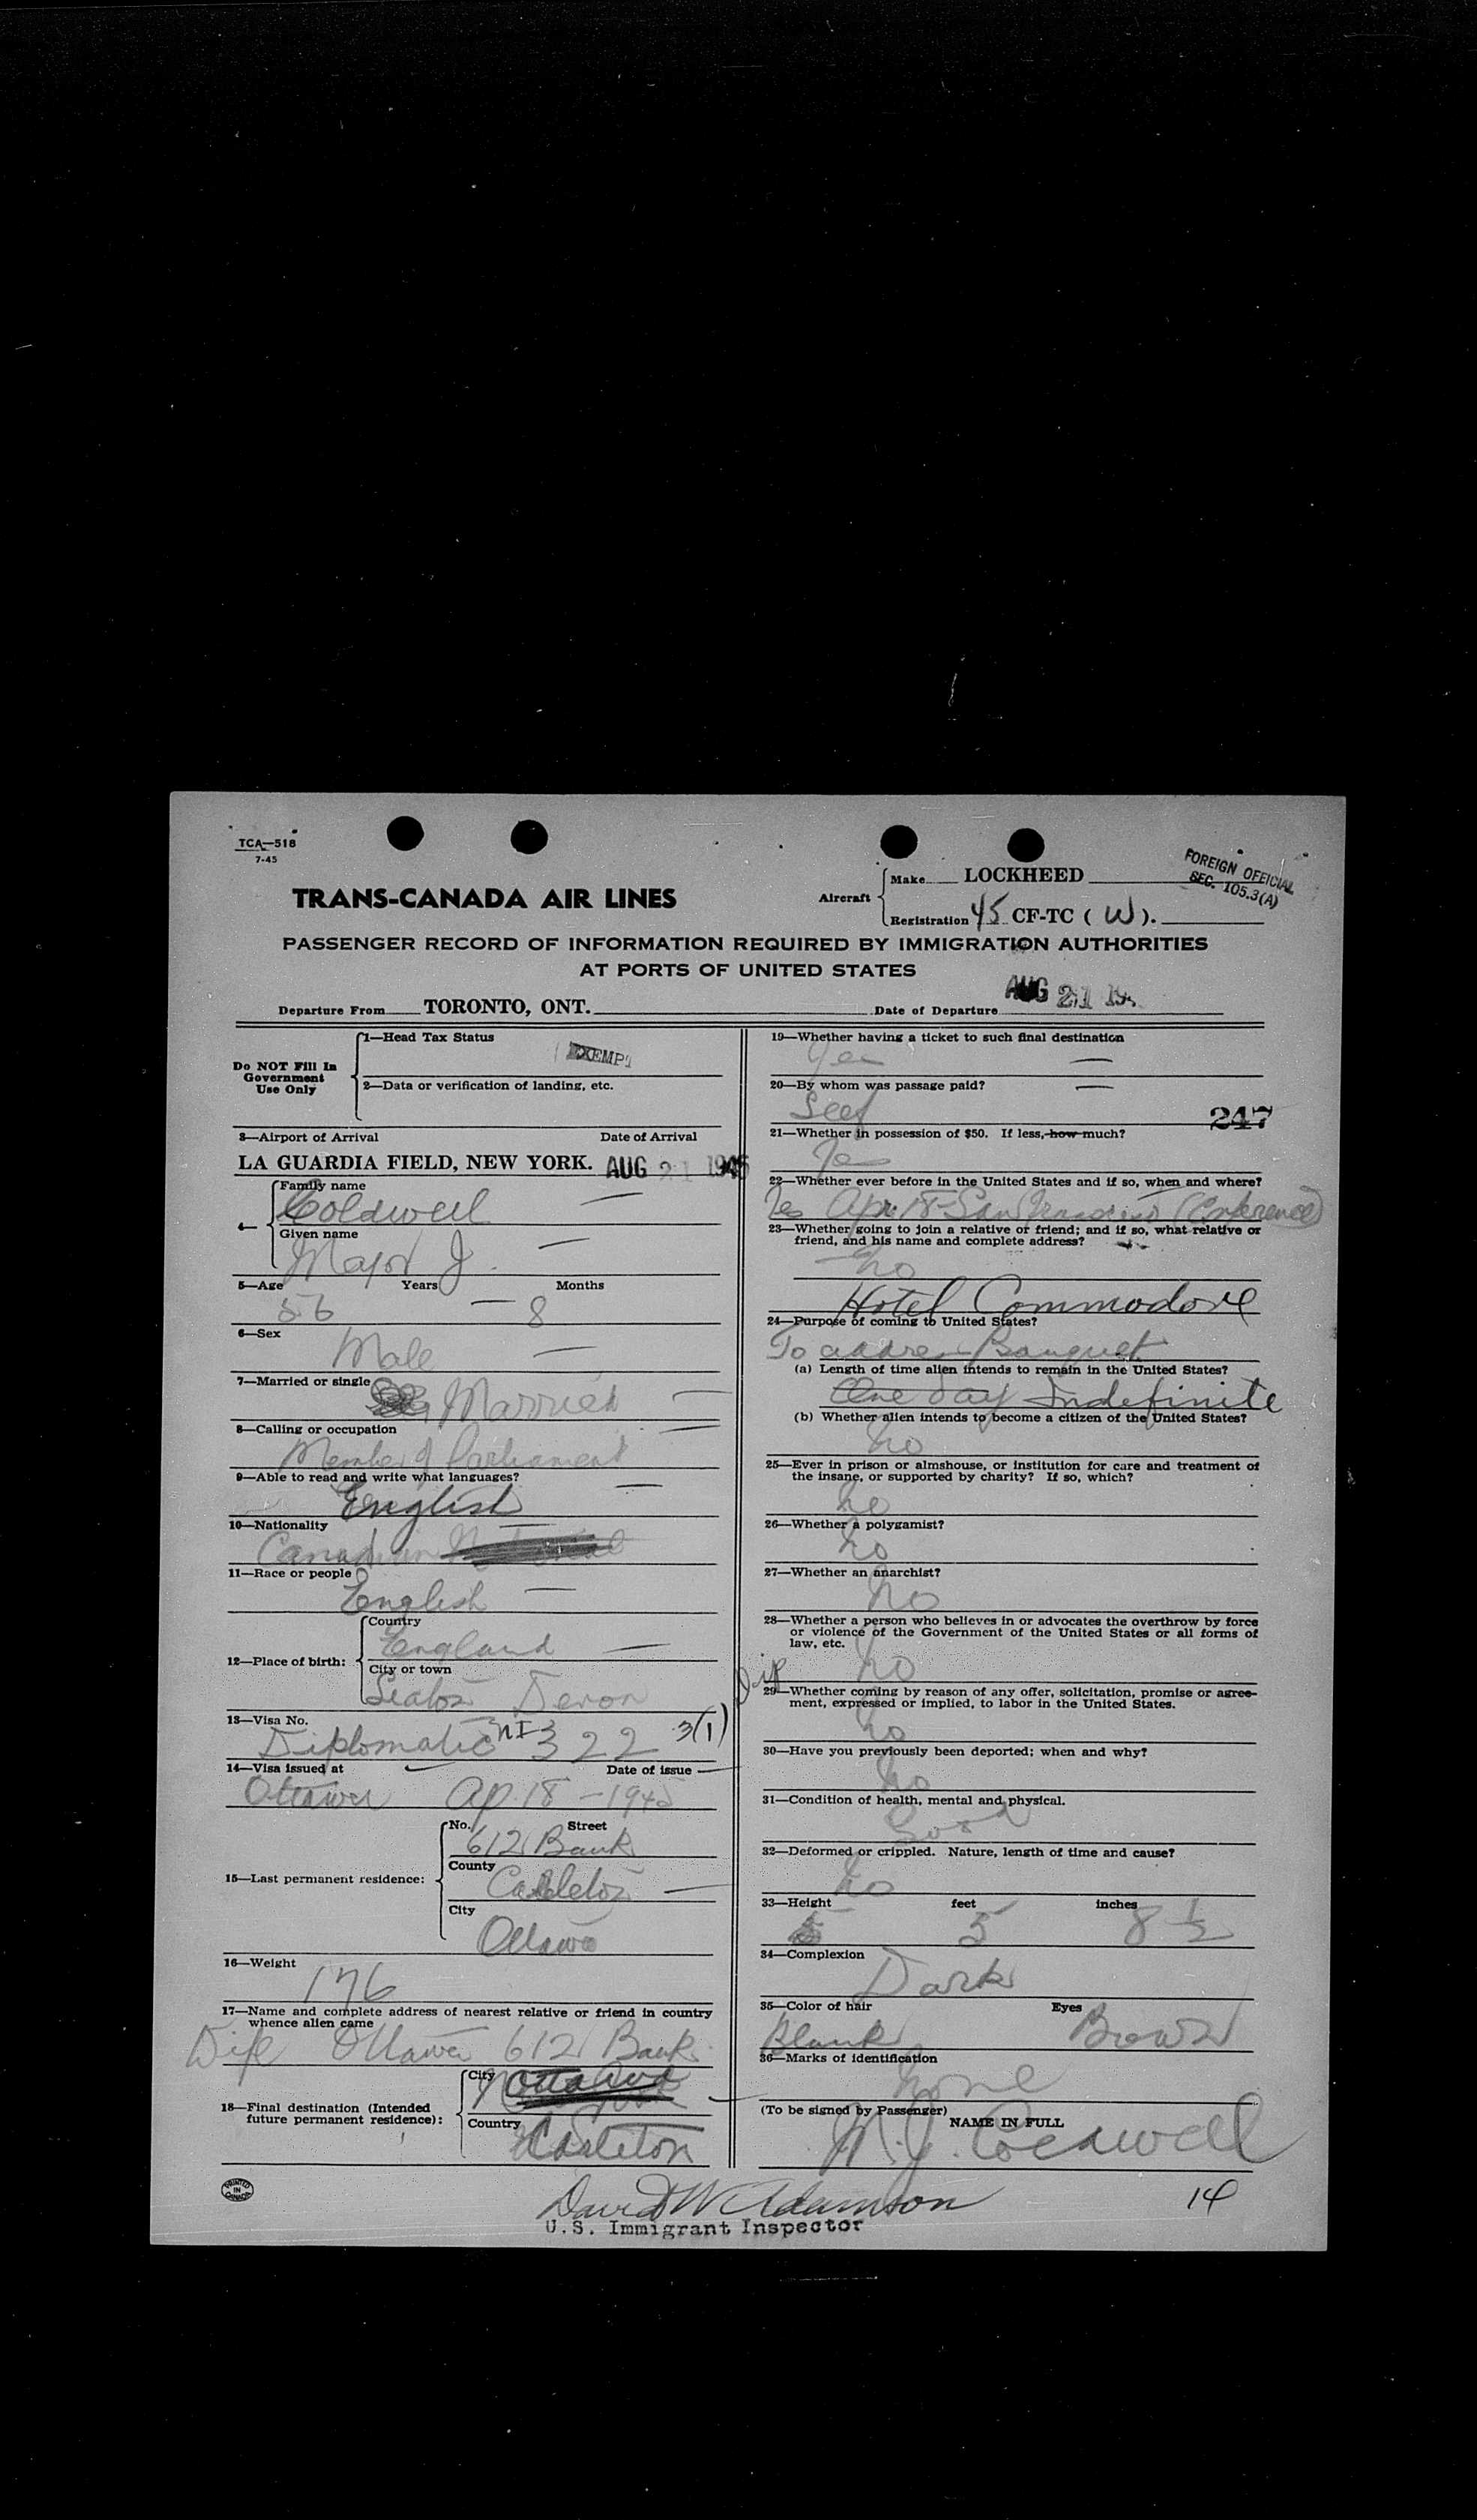 TCA—518
7-45
FOREIGN OFFICIAL
SEC. 105.3(A)
TRANS-CANADA AIR LINES
Aircraft
Make LOCKHEED
Registration 45 CF-TC ( W ).
PASSENGER RECORD OF INFORMATION REQUIRED BY IMMIGRATION AUTHORITIES
AT PORTS OF UNITED STATES
Departure From TORONTO, ONT. Date of Departure AUG 21 19
Do NOT Fill In
Government
Use Only
1—Head Tax Status
EXEMPT
2—Data or verification of landing, etc.
3—Airport of Arrival Date of Arrival
LA GUARDIA FIELD, NEW YORK. AUG 21 1945
4—
Family name
Coldwell —
Given name
Major J. —
5—Age Years Months
56 — 8
6—Sex
Male —
7—Married or single
Married —
8—Calling or occupation
Member of Parliament —
9—Able to read and write what languages?
English —
10—Nationality
Canadian
11—Race or people
English —
12—Place of birth:
Country
England —
City or town
Seaton Devon
13—Visa No.
Diplomatic NI 322 3(1)
14—Visa issued at Date of issue
Ottawa Ap. 18 - 1945
15—Last permanent residence:
No. Street
612 Bank
County
Carleton —
City
Ottawa
16—Weight
176
17—Name and complete address of nearest relative or friend in country
whence alien came
Wife Ottawa 612 Bank
18—Final destination (Intended
future permanent residence):
City
Ottawa
Country
Carleton
PRINTED
IN
CANADA
19—Whether having a ticket to such final destination
Yes —
20—By whom was passage paid? —
Self
247
21—Whether in possession of $50. If less, how much?
Yes
22—Whether ever before in the United States and if so, when and where?
Yes Apr. 18 - San Francisco (Conference)
23—Whether going to join a relative or friend; and if so, what relative or
friend, and his name and complete address?
no
Hotel Commodore
24—Purpose of coming to United States?
To address Banquet
(a) Length of time alien intends to remain in the United States?
One day Indefinite
(b) Whether alien intends to become a citizen of the United States?
no
25—Ever in prison or almshouse, or institution for care and treatment of
the insane, or supported by charity? If so, which?
no
26—Whether a polygamist?
no
27—Whether an anarchist?
no
28—Whether a person who believes in or advocates the overthrow by force
or violence of the Government of the United States or all forms of
law, etc.
no
Dip
29—Whether coming by reason of any offer, solicitation, promise or agree-
ment, expressed or implied, to labor in the United States.
no
30—Have you previously been deported; when and why?
no
31—Condition of health, mental and physical.
Good
32—Deformed or crippled. Nature, length of time and cause?
no
33—Height feet inches
5 8 1/2
34—Complexion
Dark
35—Color of hair Eyes
Black Brown
36—Marks of identification
none
(To be signed by Passenger)
NAME IN FULL
M. J. Coldwell
David W Adamson
U.S. Immigrant Inspector
14